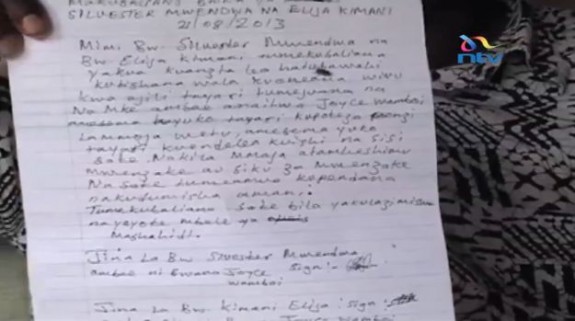 MAKUBALIANO BAINA ya
SILVESTER MWENDWA NA ELIJA KIMANI
21/08/2013
ntv
Mimi Bw. Silvester Mwendwa na
Bw. Elija Kimani tumekubaliana
yakua kuanzia leo hatutawahi
kutishana wala kuoneana wivu
kwa ajili tayari tumejuana na
Na Mke ambae anaitwa Joyce Wamboi
amesema hayuko tayari kupoteza
Lammoja wetu, amesema yuko
tayari kuendelea kuishi na sisi
sote. Na kila Moja atamheshimu
Mwenzake au siku za Mwenzake
Na sote tumeamua kupendana
nakudumisha amani.
Tumekubaliana sote bila yakulazimishwa
na yeyote mbele ya
Mashahidi.
Jina La Bw Silvester Mwendwa
ambae ni Bwana Joyce Sign:-
Wamboi
Jina La Bw. Kimani Elija Sign:
Joyce Wamboi